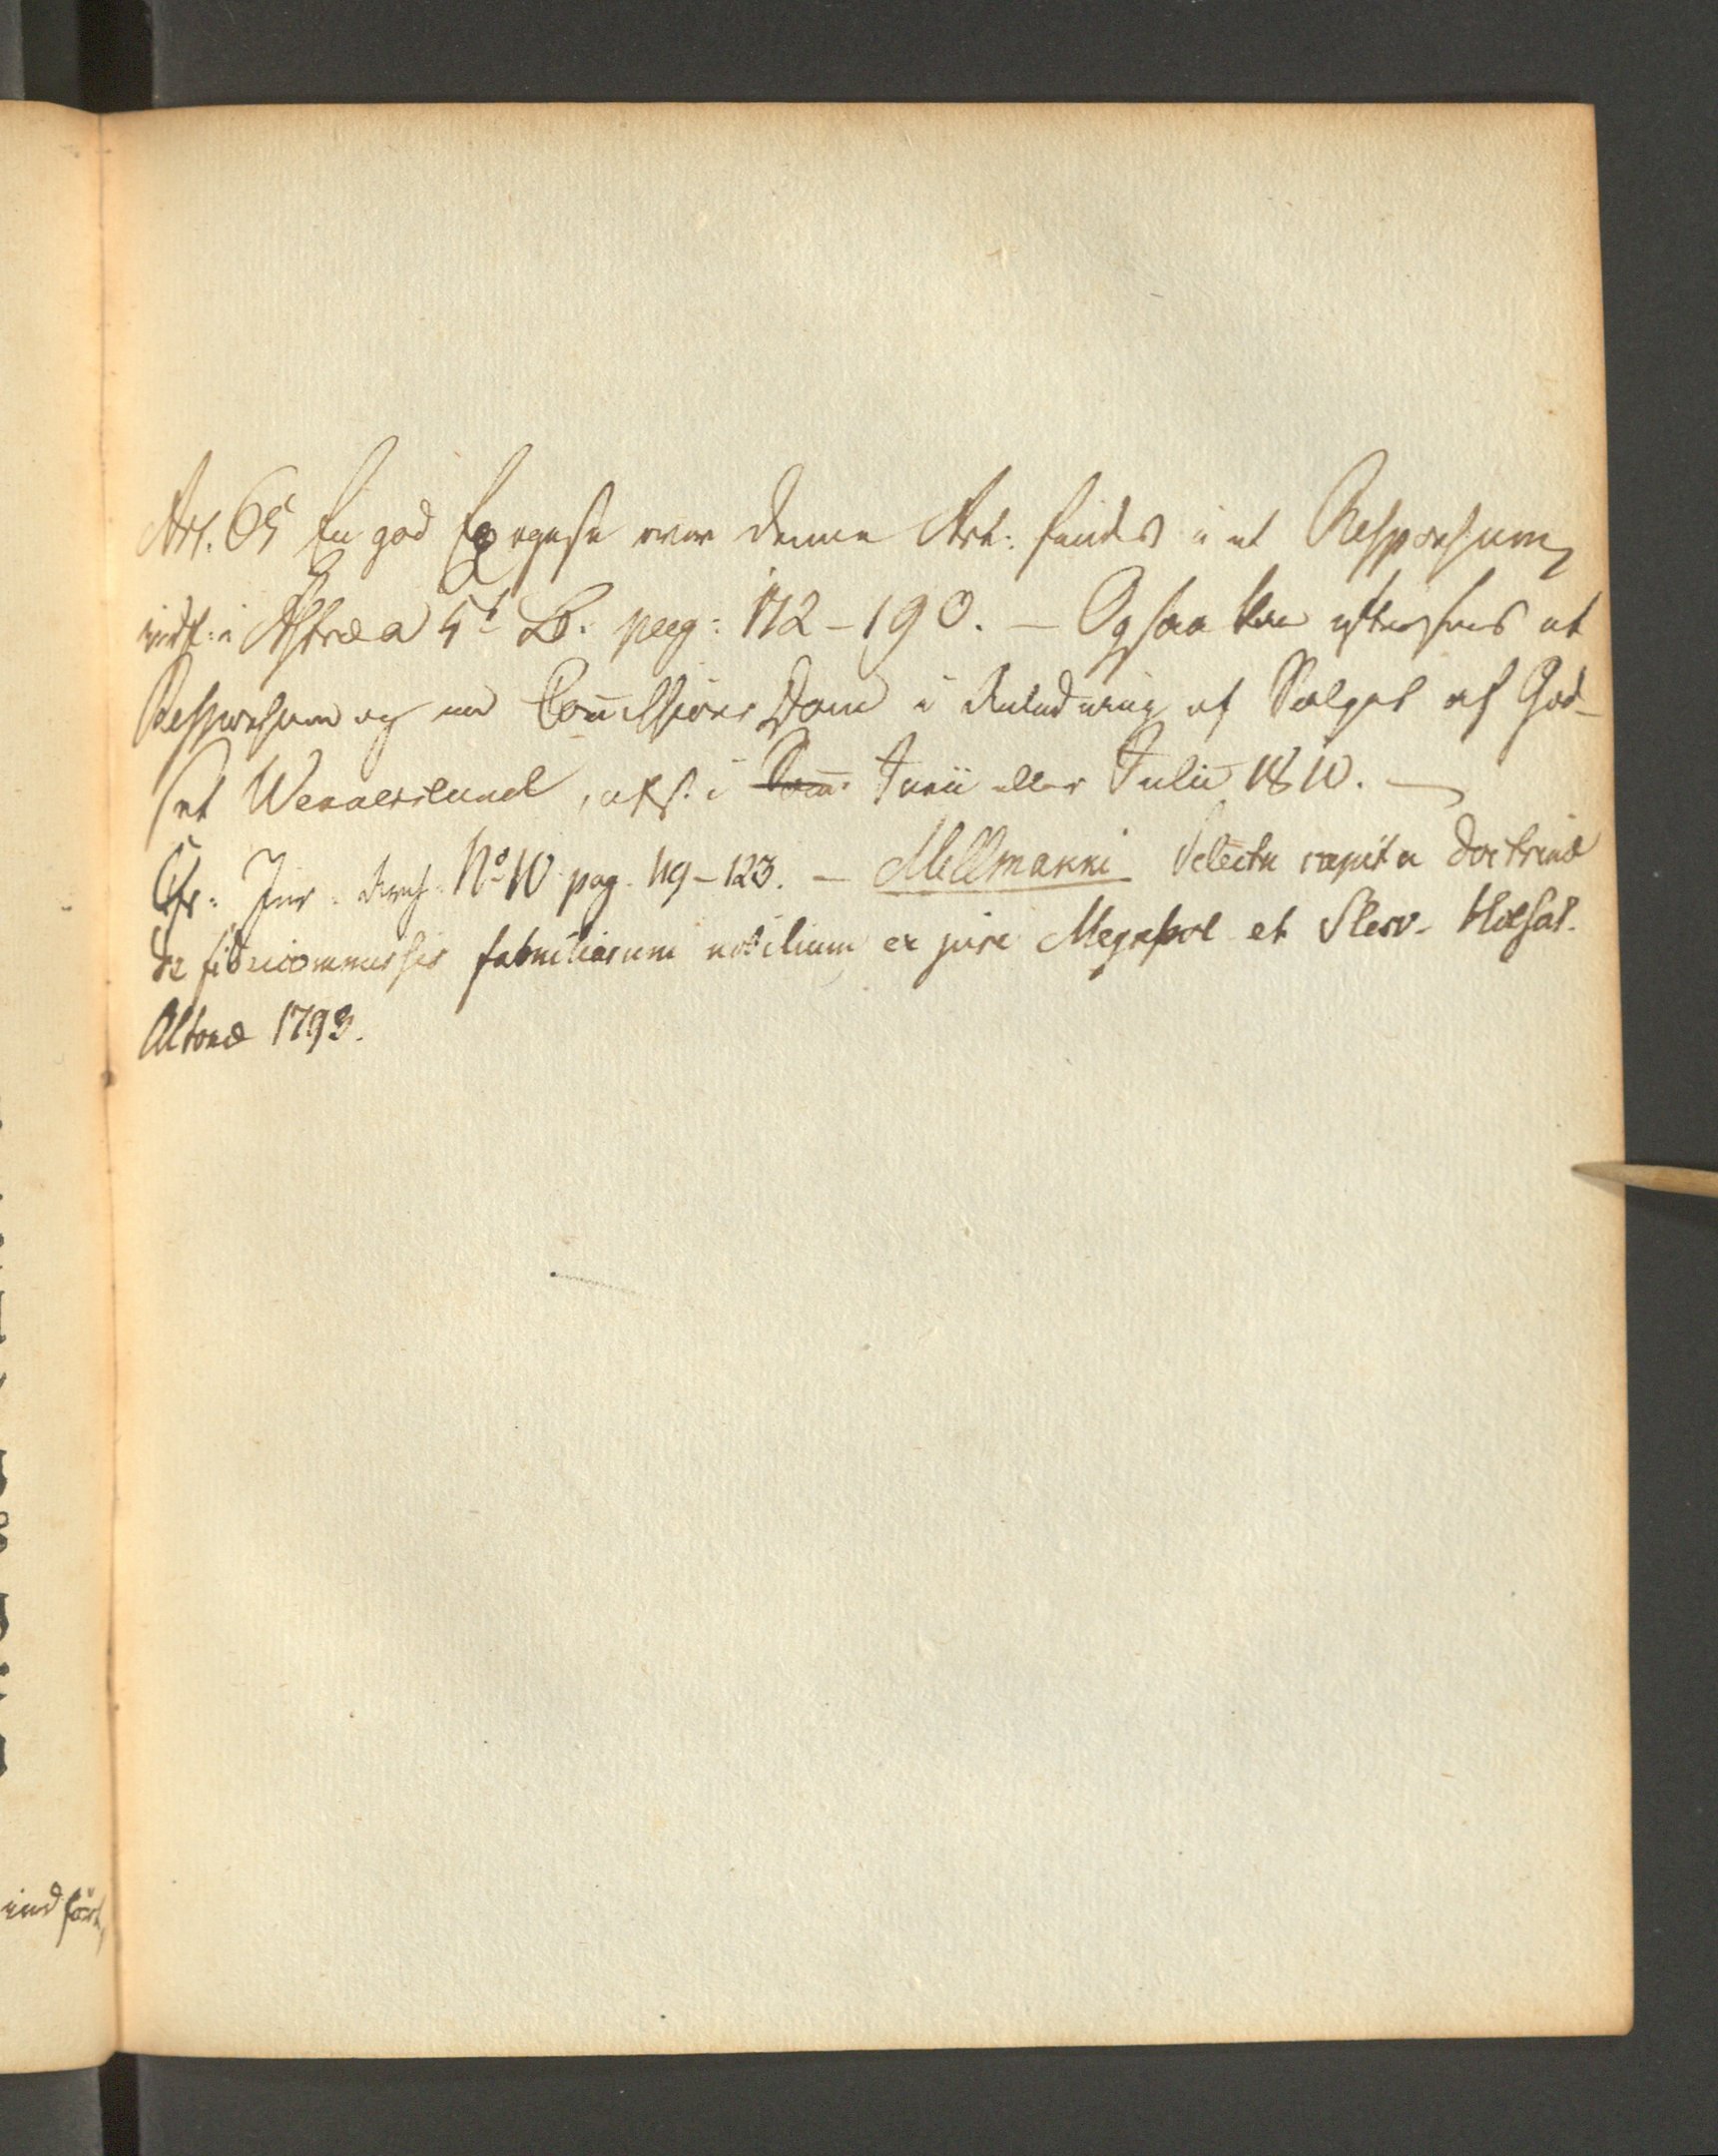 Art. 65 En god Exegese over denne Art: findes i et Responsum
indf: i Astræa 5t B. pag: 172-190. - Ogsaa kan eftersees et
Responsum og en Com̅issions Dom i Anledning af Salget af God-
set Wennerslund, afs. i Junii eller Julii 1810. -
Cfr: Jur. Arch. No 10 pag. 119-123. - Mellmanni Selecta capita doctrinæ
de fideicommissis familiarum nobilium ex jure Megapol et Slesv. Holsat.
Altonæ 1793.
indført,